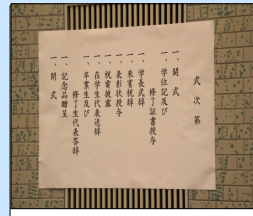 式次第
一、開式
一、学位記及び
修了証書授与
一、学長式辞
一、来賓祝辞
一、表彰状授与
一、祝電披露
一、在学生代表送辞
一、卒業生及び
修了生代表答辞
一、記念品贈呈
一、閉式